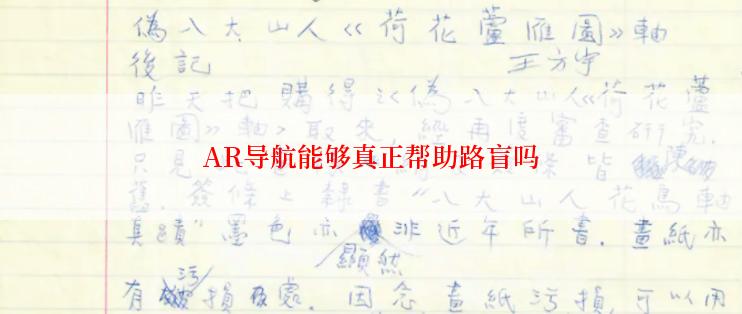 偽八大山人《荷花蘆雁圖》軸
後記 王方宇
昨天把購得之《偽八大山人《荷花蘆
雁圖》軸》取來,經再度審查研究.
AR导航能够真正帮助路盲吗
只見 條皆 陳
舊.簽條上隸書“八大山人花鳥軸
真蹟”墨色亦非近年所書.畫紙亦
顯然
有污損處.因念畫紙污損,可以用